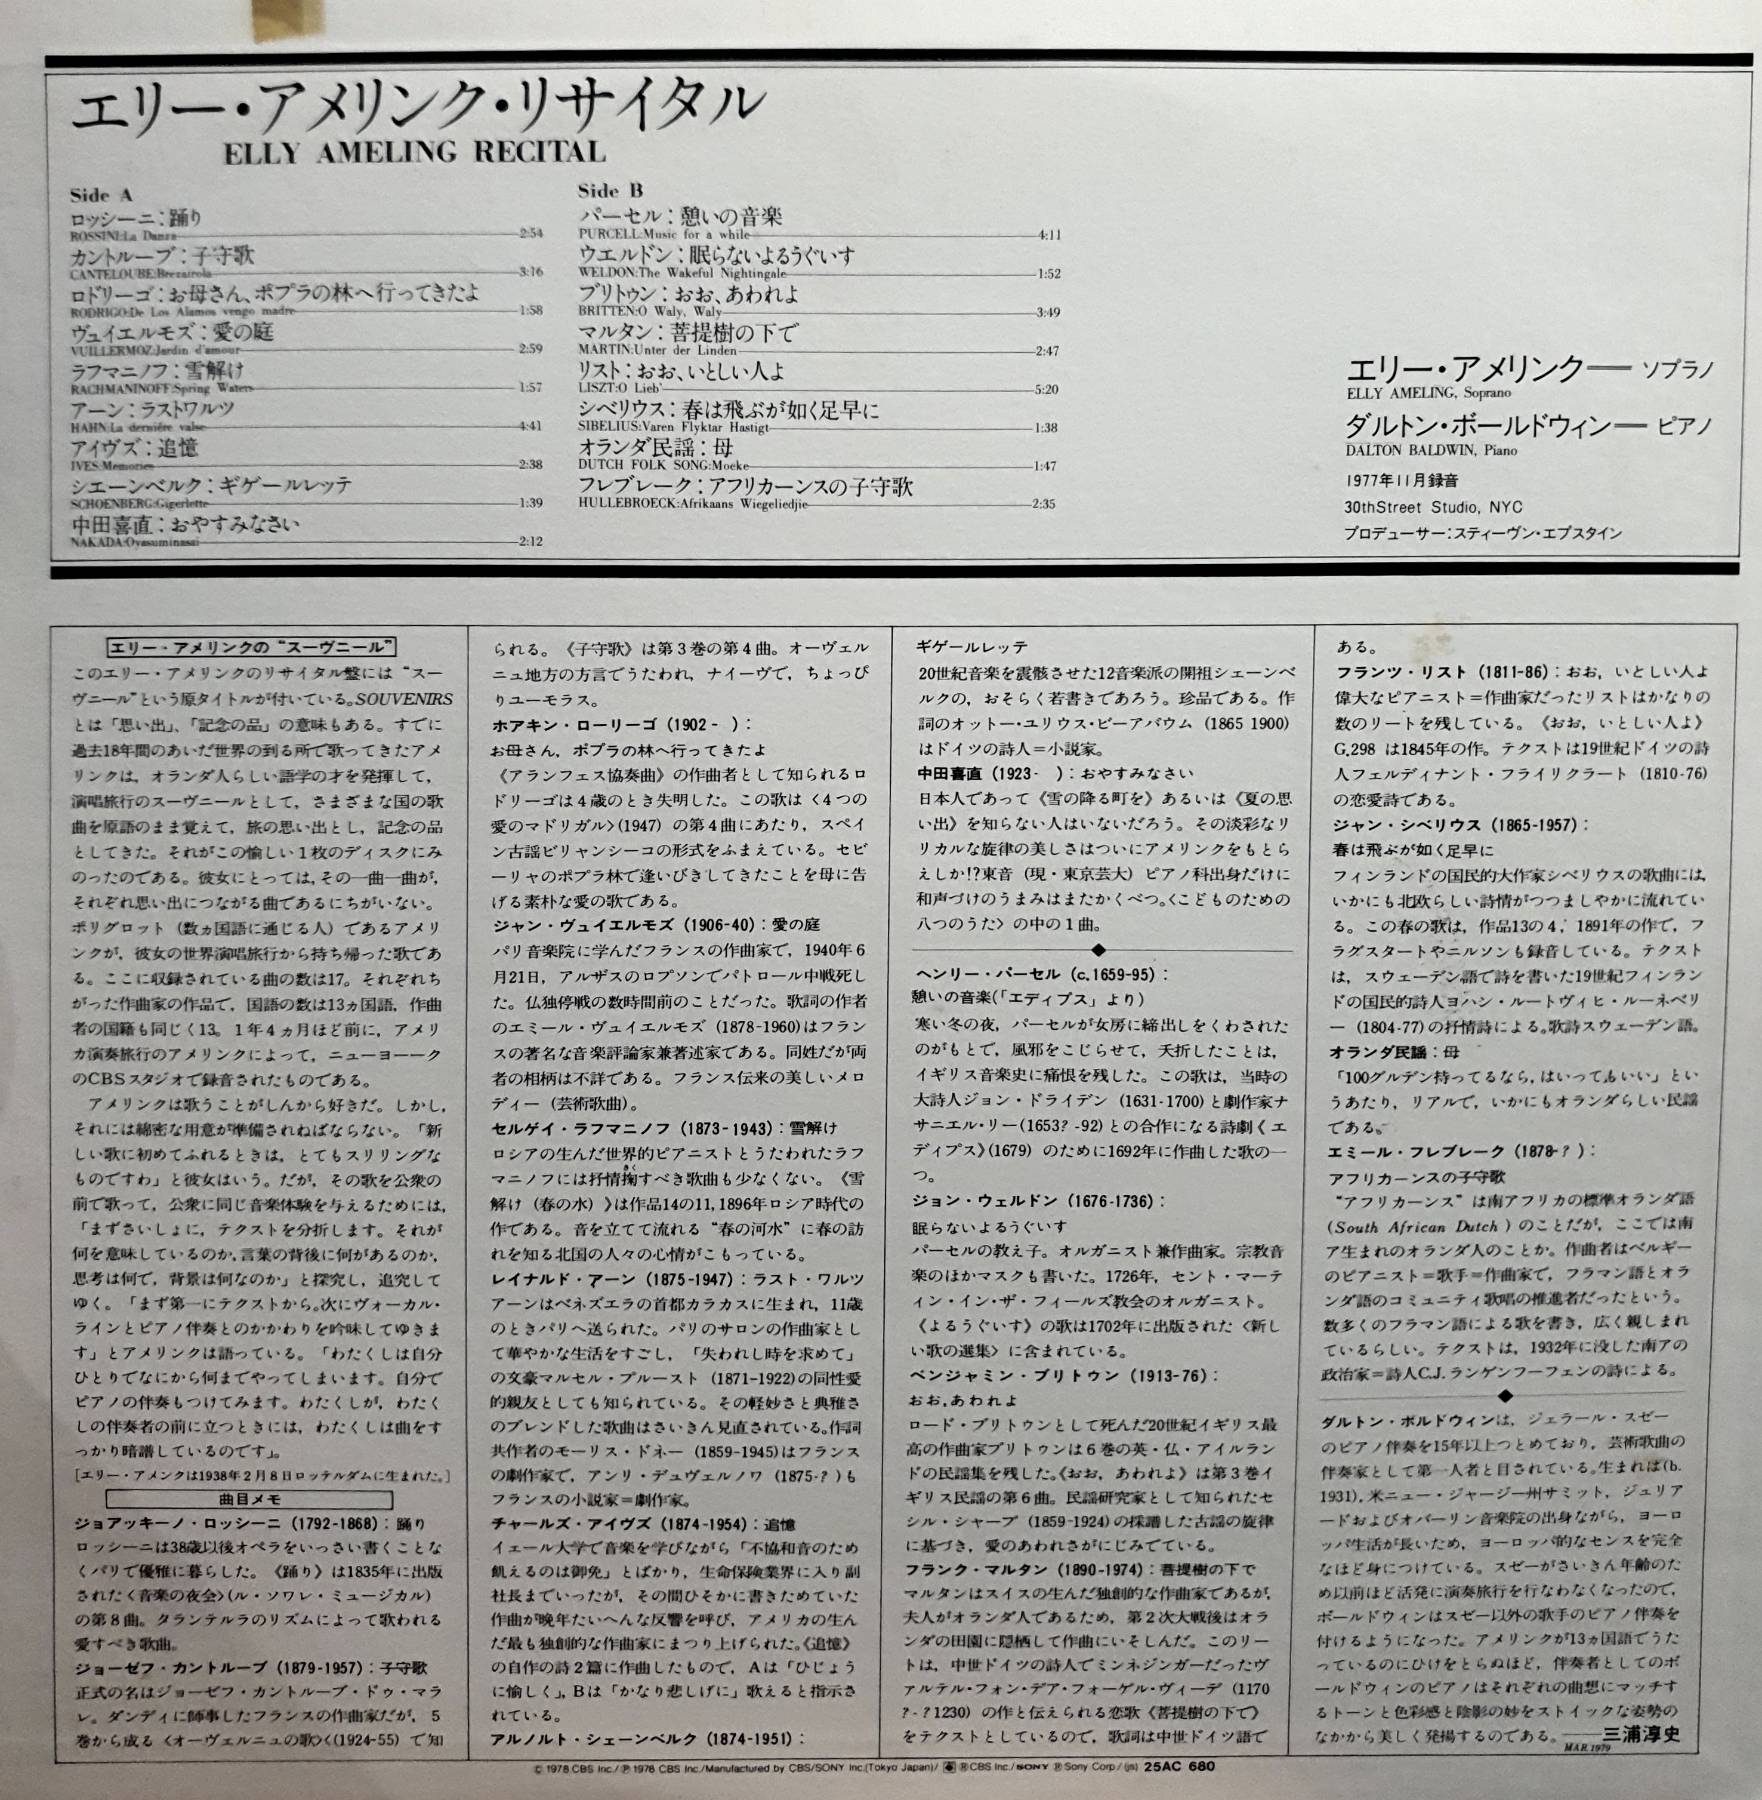 エリー・アメリンク・リサイタル
ELLY AMELING RECITAL
Side A
ロッシーニ：踊り
ROSSINI:La Danza 2:54
カントルーブ：子守歌
CANTELOUBE:Brezairola 3:16
ロドリーゴ：お母さん、ポプラの林へ行ってきたよ
RODRIGO:De Los Alamos vengo madre 1:58
ヴュイエルモズ：愛の庭
VUILLERMOZ:Jardin d'amour 2:59
ラフマニノフ：雪解け
RACHMANINOFF:Spring Waters 1:57
アーン：ラストワルツ
HAHN:La dernière valse 4:41
アイヴズ：追憶
IVES:Memories 2:38
シエーンベルク：ギゲールレッテ
SCHOENBERG:Gigerlette 1:39
中田喜直：おやすみなさい
NAKADA:Oyasuminasai 2:12
Side B
パーセル：憩いの音楽
PURCELL:Music for a while 4:11
ウエルドン：眠らないよるうぐいす
WELDON:The Wakeful Nightingale 1:52
ブリトゥン：おお、あわれよ
BRITTEN:O Waly, Waly 3:49
マルタン：菩提樹の下で
MARTIN:Unter der Linden 2:47
リスト：おお、いとしい人よ
LISZT:O Lieb' 5:20
シベリウス：春は飛ぶが如く足早に
SIBELIUS:Varen Flyktar Hastigt 1:38
オランダ民謡：母
DUTCH FOLK SONG:Moeke 1:47
フレブレーク：アフリカーンスの子守歌
HULLEBROECK:Afrikaans Wiegeliedjie 2:35
エリー・アメリンク── ソプラノ
ELLY AMELING, Soprano
ダルトン・ボールドウィン── ピアノ
DALTON BALDWIN, Piano
1977年11月録音
30thStreet Studio, NYC
プロデューサー：スティーヴン・エプスタイン
エリー・アメリンクの“スーヴニール”
このエリー・アメリンクのリサイタル盤には“スー
ヴニール”という原タイトルが付いている。SOUVENIRS
とは「思い出」、「記念の品」の意味もある。すでに
過去18年間のあいだ世界の到る所で歌ってきたアメ
リンクは，オランダ人らしい語学の才を発揮して，
演唱旅行のスーヴニールとして，さまざまな国の歌
曲を原語のまま覚えて，旅の思い出とし，記念の品
としてきた。それがこの愉しい１枚のディスクにみ
のったのである。彼女にとっては，その一曲一曲が，
それぞれ思い出につながる曲であるにちがいない。
ポリグロット（数ヵ国語に通じる人）であるアメリ
ンクが，彼女の世界演唱旅行から持ち帰った歌であ
る。ここに収録されている曲の数は17。それぞれち
がった作曲家の作品で，国語の数は13ヵ国語，作曲
者の国籍も同じく13。１年４ヵ月ほど前に，アメリ
カ演奏旅行のアメリンクによって，ニューヨーーク
のCBSスタジオで録音されたものである。
　アメリンクは歌うことがしんから好きだ。しかし，
それには綿密な用意が準備されねばならない。「新
しい歌に初めてふれるときは，とてもスリリングな
ものですわ」と彼女はいう。だが，その歌を公衆の
前で歌って，公衆に同じ音楽体験を与えるためには，
「まずさいしょに，テクストを分折します。それが
何を意味しているのか，言葉の背後に何があるのか，
思考は何で，背景は何なのか」と探究し，追究して
ゆく。「まず第一にテクストから。次にヴォーカル・
ラインとピアノ伴奏とのかかわりを吟味してゆきま
す」とアメリンクは語っている。「わたくしは自分
ひとりでなにから何までやってしまいます。自分で
ピアノの伴奏もつけてみます。わたくしが，わたく
しの伴奏者の前に立つときには，わたくしは曲をす
っかり暗譜しているのです」。
［エリー・アメンクは1938年２月８日ロッテルダムに生まれた。］
曲目メモ
ジョアッキーノ・ロッシーニ（1792-1868）：踊り
ロッシーニは38歳以後オペラをいっさい書くことな
くパリで優雅に暮らした。《踊り》は1835年に出版
された＜音楽の夜会＞（ル・ソワレ・ミュージカル）
の第８曲。タランテルラのリズムによって歌われる
愛すべき歌曲。
ジョーゼフ・カントルーブ（1879-1957）：子守歌
正式の名はジョーゼフ・カントルーブ・ドゥ・マラ
レ。ダンディに師事したフランスの作曲家だが，５
巻から成る＜オーヴェルニュの歌＞（1924-55）で知
られる。《子守歌》は第３巻の第４曲。オーヴェル
ニュ地方の方言でうたわれ，ナイーヴで，ちょっぴ
りユーモラス。
ホアキン・ローリーゴ（1902-　）：
お母さん，ポプラの林へ行ってきたよ
《アランフェス協奏曲》の作曲者として知られるロ
ドリーゴは４歳のとき失明した。この歌は＜４つの
愛のマドリガル＞（1947）の第４曲にあたり，スペイ
ン古謡ビリャンシーコの形式をふまえている。セビ
ーリャのポプラ林で逢いびきしてきたことを母に告
げる素朴な愛の歌である。
ジャン・ヴュイエルモズ（1906-40）：愛の庭
パリ音楽院に学んだフランスの作曲家で，1940年６
月21日，アルザスのロプソンでパトロール中戦死し
た。仏独停戦の数時間前のことだった。歌詞の作者
のエミール・ヴュイエルモズ（1878-1960）はフラン
スの著名な音楽評論家兼著述家である。同姓だが両
者の相柄は不詳である。フランス伝来の美しいメロ
ディー（芸術歌曲）。
セルゲイ・ラフマニノフ（1873-1943）：雪解け
ロシアの生んだ世界的ピアニストとうたわれたラフ
マニノフには抒情掬すべき歌曲も少なくない。《雪
解け（春の水）》は作品14の11，1896年ロシア時代の
作である。音を立てて流れる“春の河水”に春の訪
れを知る北国の人々の心情がこもっている。
レイナルド・アーン（1875-1947）：ラスト・ワルツ
アーンはベネズエラの首都カラカスに生まれ，11歳
のときパリへ送られた。パリのサロンの作曲家とし
て華やかな生活をすごし，「失われし時を求めて」
の文豪マルセル・プルースト（1871-1922）の同性愛
的親友としても知られている。その軽妙さと典雅さ
のブレンドした歌曲はさいきん見直されている。作詞
共作者のモーリス・ドネー（1859-1945）はフランス
の劇作家で，アンリ・デュヴェルノワ（1875-？）も
フランスの小説家＝劇作家。
チャールズ・アイヴズ（1874-1954）：追憶
イェール大学で音楽を学びながら「不協和音のため
飢えるのは御免」とばかり，生命保険業界に入り副
社長までいったが，その間ひそかに書きためていた
作曲が晩年たいへんな反響を呼び，アメリカの生ん
だ最も独創的な作曲家にまつり上げられた。《追憶》
の自作の詩２篇に作曲したもので，Ａは「ひじょう
に愉しく」，Ｂは「かなり悲しげに」歌えると指示さ
れている。
アルノルト・シェーンベルク（1874-1951）：
ギゲールレッテ
20世紀音楽を震骸させた12音楽派の開祖シェーンベ
ルクの，おそらく若書きであろう。珍品である。作
詞のオットー・ユリウス・ビーアバウム（1865 1900）
はドイツの詩人＝小説家。
中田喜直（1923-　）：おやすみなさい
日本人であって《雪の降る町を》あるいは《夏の思
い出》を知らない人はいないだろう。その淡彩なリ
リカルな旋律の美しさはついにアメリンクをもとら
えしか!?東音（現・東京芸大）ピアノ科出身だけに
和声づけのうまみはまたかくべつ。＜こどものための
八つのうた＞の中の１曲。
ヘンリー・パーセル（c.1659-95）：
憩いの音楽（「エディプス」より）
寒い冬の夜，パーセルが女房に締出しをくわされた
のがもとで，風邪をこじらせて，夭折したことは，
イギリス音楽史に痛恨を残した。この歌は，当時の
大詩人ジョン・ドライデン（1631-1700）と劇作家ナ
サニエル・リー（1653？-92）との合作になる詩劇《エ
ディプス》（1679）のために1692年に作曲した歌の一
つ。
ジョン・ウェルドン（1676-1736）：
眠らないよるうぐいす
パーセルの教え子。オルガニスト兼作曲家。宗教音
楽のほかマスクも書いた。1726年，セント・マーテ
ィン・イン・ザ・フィールズ教会のオルガニスト。
《よるうぐいす》の歌は1702年に出版された＜新し
い歌の選集＞に含まれている。
ベンジャミン・ブリトゥン（1913-76）：
おお，あわれよ
ロード・ブリトゥンとして死んだ20世紀イギリス最
高の作曲家ブリトゥンは６巻の英・仏・アイルラン
ドの民謡集を残した。《おお，あわれよ》は第３巻イ
ギリス民謡の第６曲。民謡研究家として知られたセ
シル・シャープ（1859-1924）の採譜した古謡の旋律
に基づき，愛のあわれさがにじみでている。
フランク・マルタン（1890-1974）：菩提樹の下で
マルタンはスイスの生んだ独創的な作曲家であるが，
夫人がオランダ人であるため，第２次大戦後はオラ
ンダの田園に隠栖して作曲にいそしんだ。このリー
トは，中世ドイツの詩人でミンネジンガーだったヴ
ァルテル・フォン・デア・フォーゲル・ヴィーデ（1170
？-？1230）の作と伝えられる恋歌《菩提樹の下で》
をテクストとしているので，歌詞は中世ドイツ語で
ある。
フランツ・リスト（1811-86）：おお，いとしい人よ
偉大なピアニスト＝作曲家だったリストはかなりの
数のリートを残している。《おお，いとしい人よ》
G.298 は1845年の作。テクストは19世紀ドイツの詩
人フェルディナント・フライリクラート（1810-76）
の恋愛詩である。
ジャン・シベリウス（1865-1957）：
春は飛ぶが如く足早に
フィンランドの国民的大作家シベリウスの歌曲には，
いかにも北欧らしい詩情がつつましやかに流れてい
る。この春の歌は，作品13の４，1891年の作で，フ
ラグスタートやニルソンも録音している。テクスト
は，スウェーデン語で詩を書いた19世紀フィンラン
ドの国民的詩人ヨハン・ルートヴィヒ・ルーネベリ
ー（1804-77）の抒情詩による。歌詩スウェーデン語。
オランダ民謡：母
「100グルデン持ってるなら，はいってもいい」とい
うあたり，リアルで，いかにもオランダらしい民謡
である。
エミール・フレブレーク（1878-？）：
アフリカーンスの子守歌
“アフリカーンス”は南アフリカの標準オランダ語
(South African Dutch)のことだが，ここでは南
ア生まれのオランダ人のことか。作曲者はベルギー
のピアニスト＝歌手＝作曲家で，フラマン語とオラ
ンダ語のコミュニティ歌唱の推進者だったという。
数多くのフラマン語による歌を書き，広く親しまれ
ているらしい。テクストは，1932年に没した南アの
政治家＝詩人C.J.ランゲンフーフェンの詩による。
ダルトン・ボルドウィンは，ジェラール・スゼー
のピアノ伴奏を15年以上つとめており，芸術歌曲の
伴奏家として第一人者と目されている。生まれは(b.
1931)，米ニュー・ジャージー州サミット，ジュリア
ードおよびオバーリン音楽院の出身ながら，ヨーロ
ッパ生活が長いため，ヨーロッパ的なセンスを完全
なほど身につけている。スゼーがさいきん年齢のた
め以前ほど活発に演奏旅行を行なわなくなったので，
ボールドウィンはスゼー以外の歌手のピアノ伴奏を
付けるようになった。アメリンクが13ヵ国語でうた
っているのにひけをとらぬほど，伴奏者としてのボ
ールドウィンのピアノはそれぞれの曲想にマッチす
るトーンと色彩感と陰影の妙をストイックな姿勢の
なかから美しく発揚するのである。──三浦淳史
MAR.1979
© 1978 CBS Inc./℗ 1978 CBS Inc./Manufactured by CBS/SONY Inc.(Tokyo Japan)/ ®CBS Inc./SONY ® Sony Corp./(js) 25AC 680